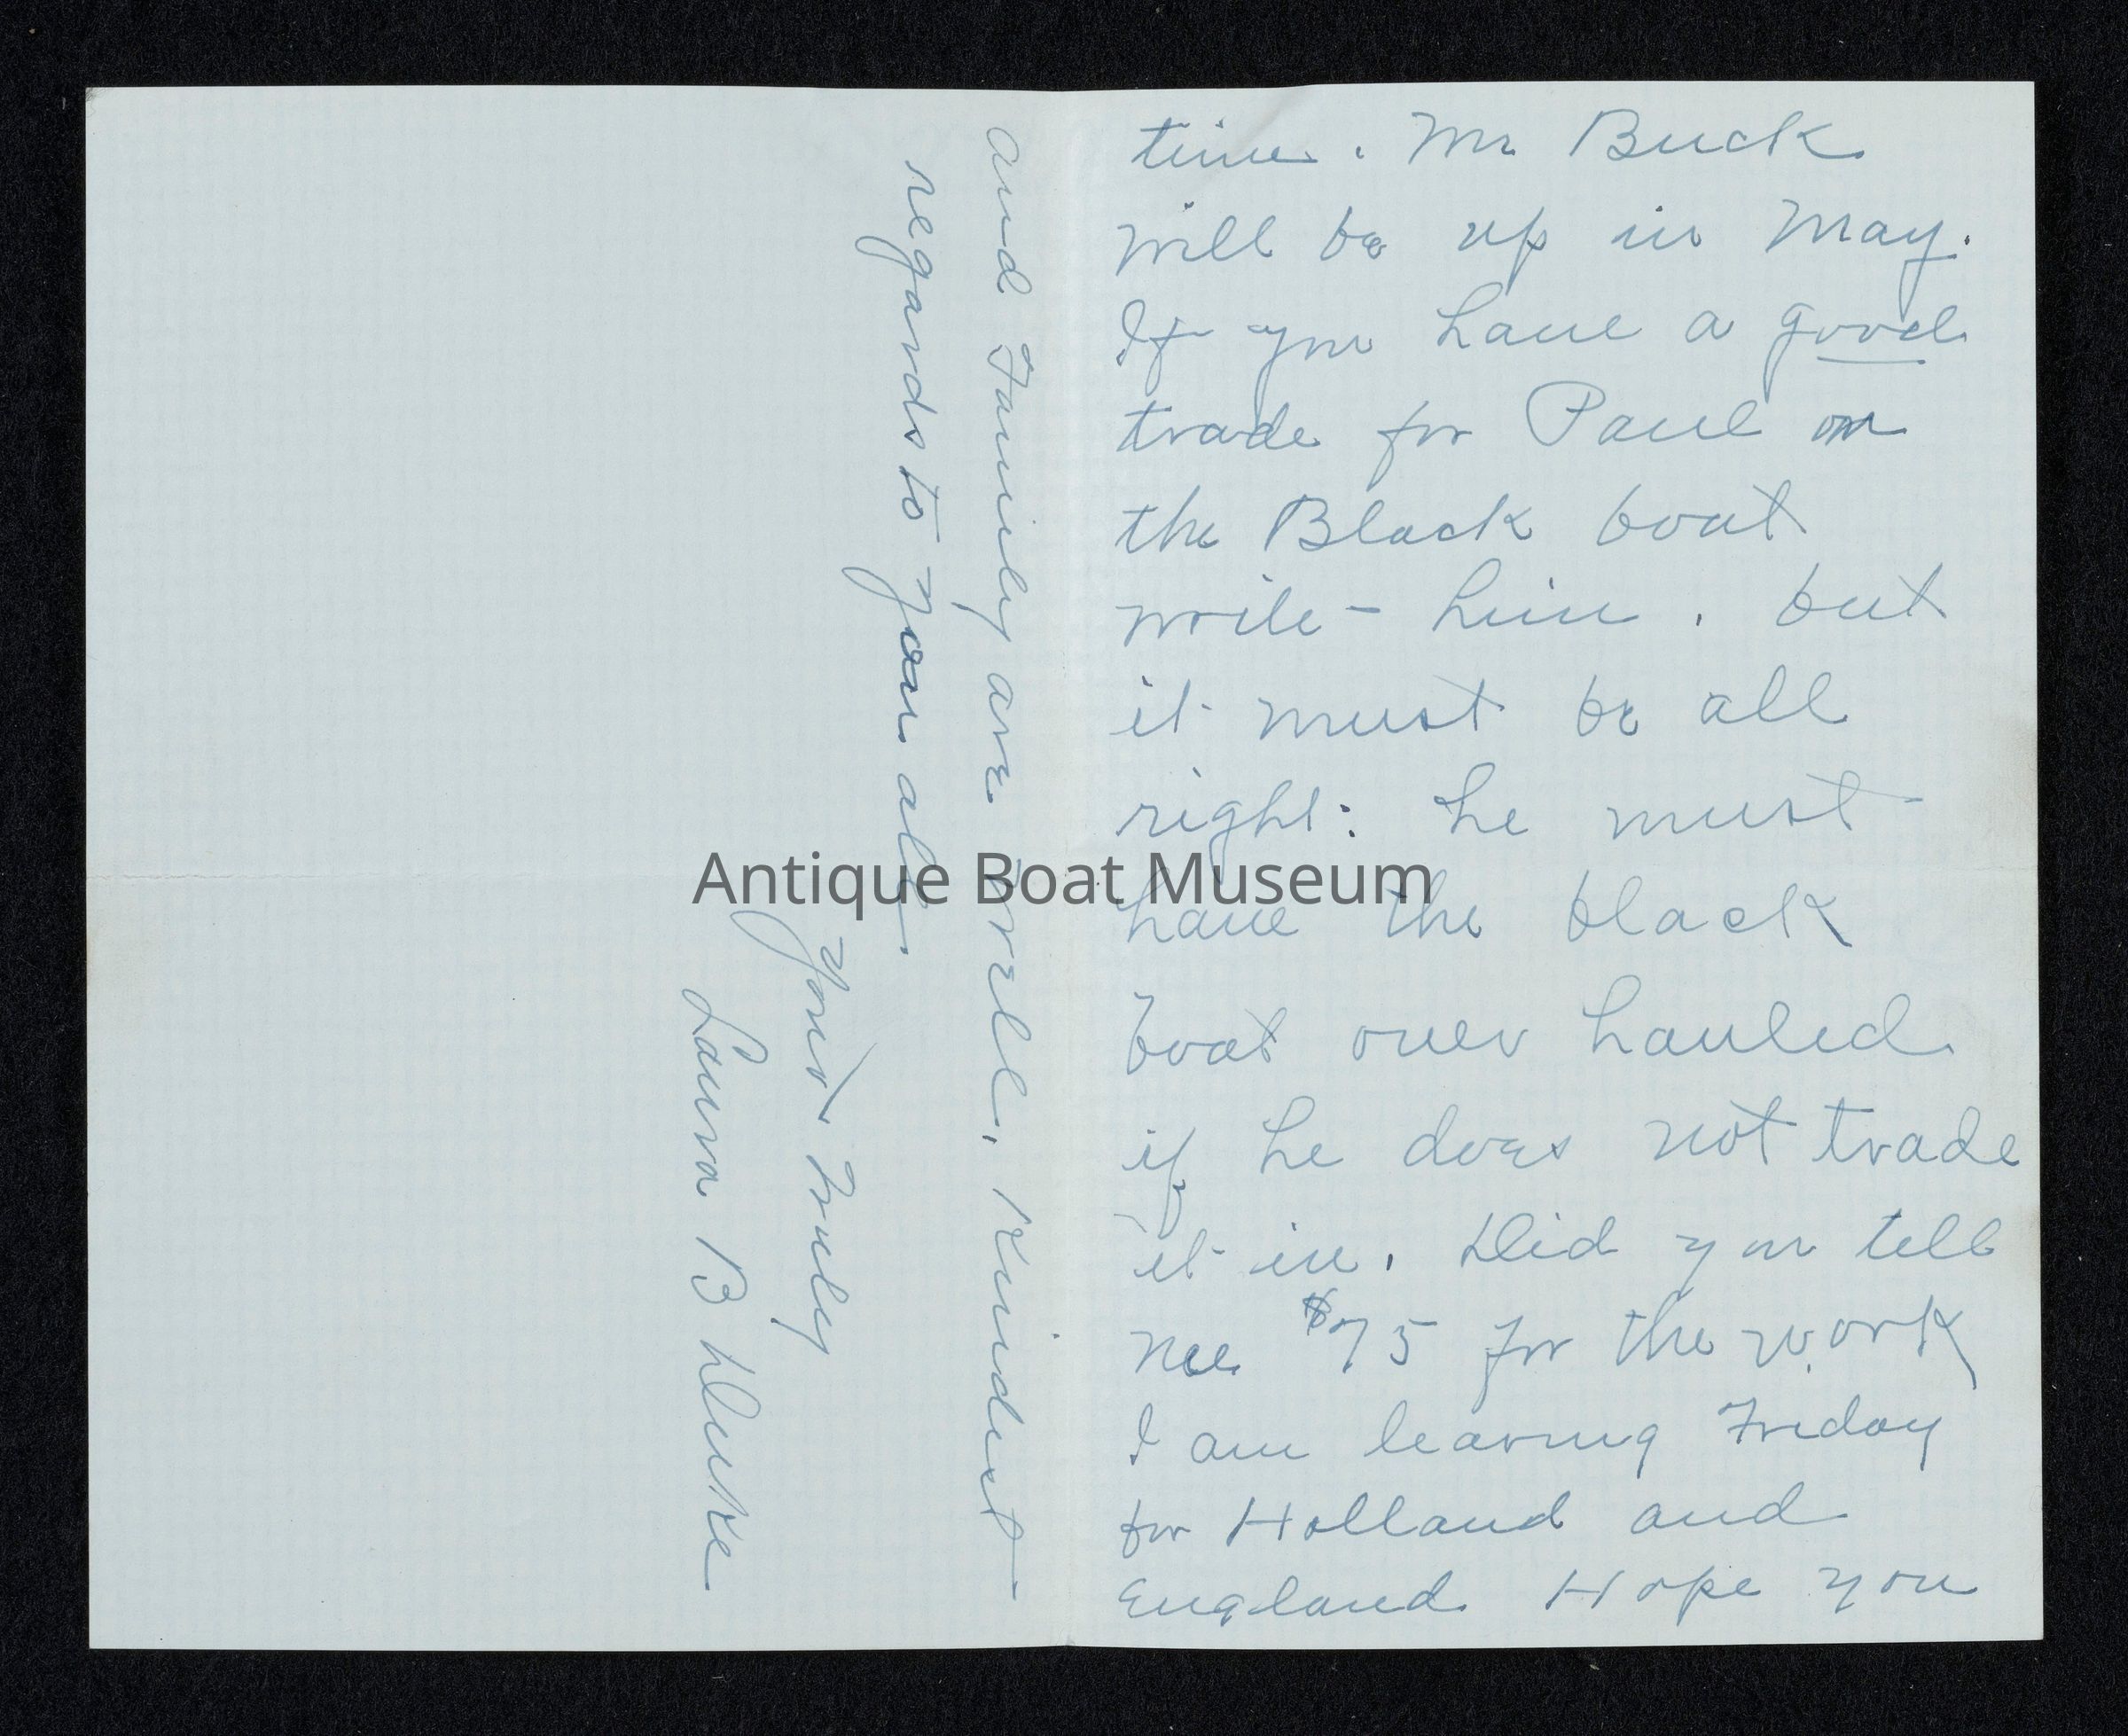 time. Mr Buck
will be up in May.
If you have a good
trade for Paul on
the Black boat
write him. but
it must be all
right: he must
have the black
boat over hauled
if he does not trade
it in. Did you tell
me $75 for the work
I am leaving Friday
for Holland and
England Hope you
and Family are well. Kindest
regards to you all.
Yours Truly
Laura B Duke
Antique Boat Museum